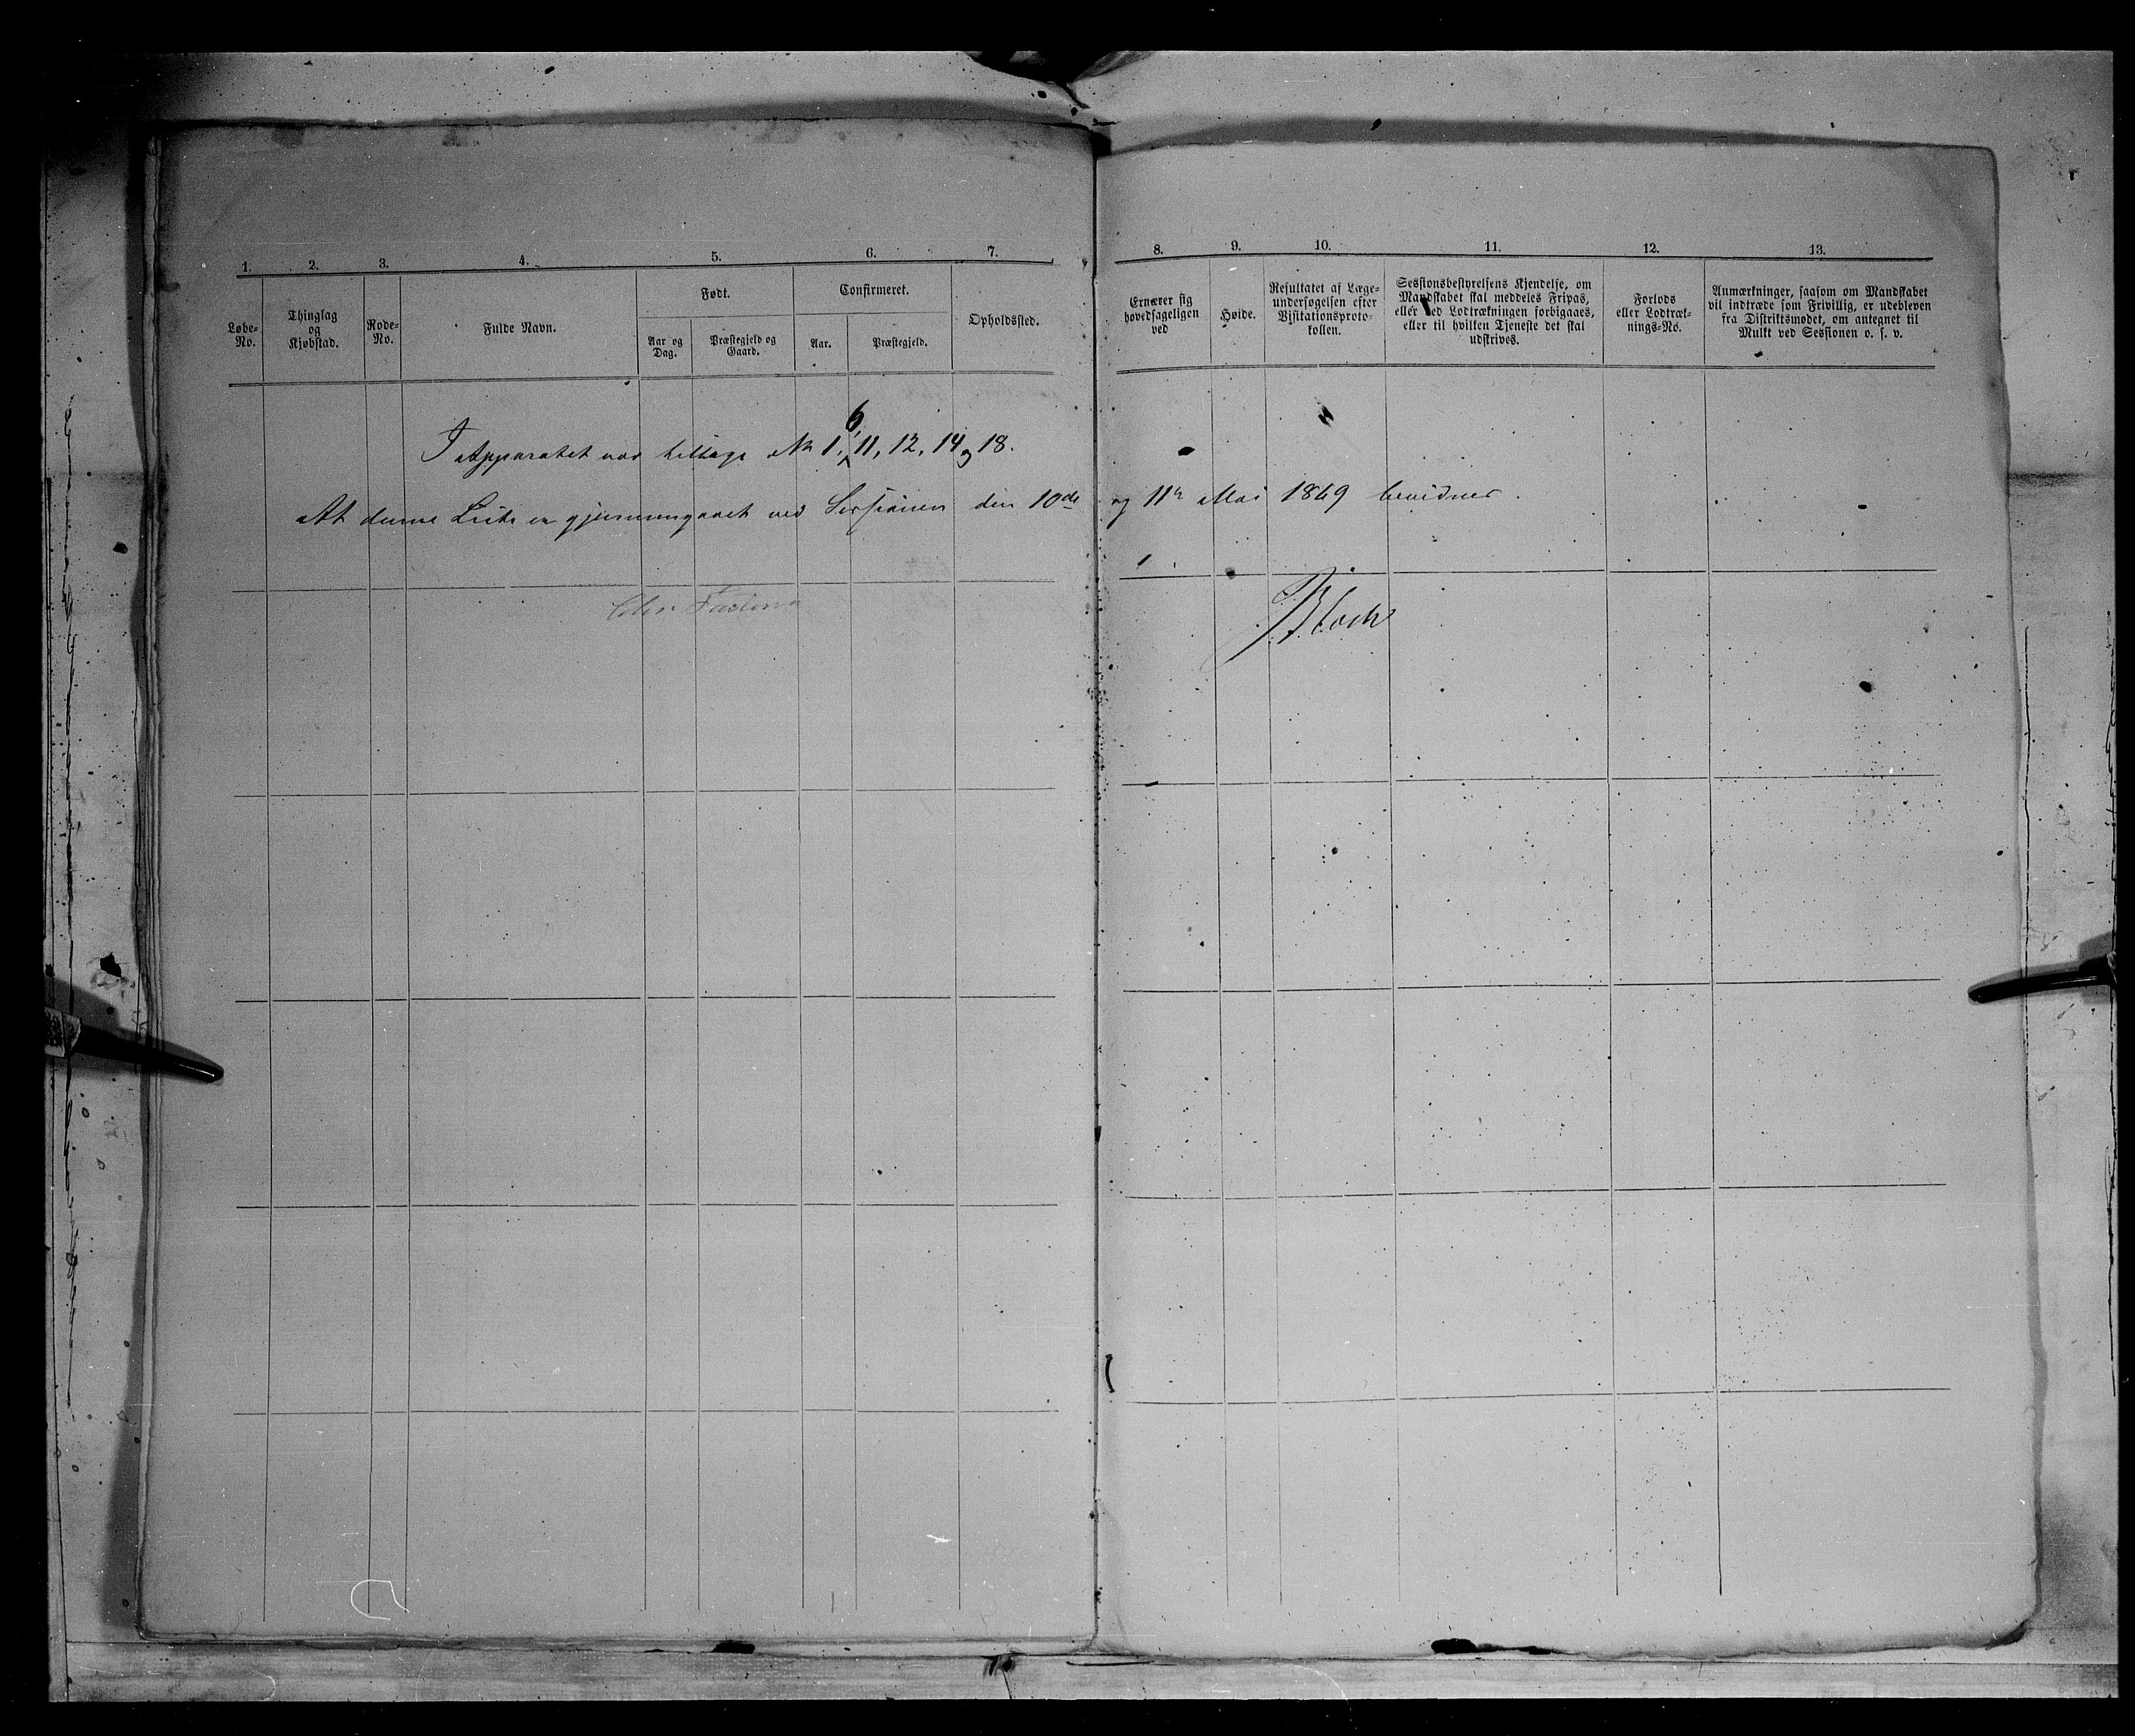 1. 2. 3. 4. 5. 6. 7. 8. 9. 10. 11. 12. 13.
Løbe-
No.
Thinglag
og
Kjøbstad.
Rode-
No.
Fulde Navn.
Født.
Aar og
Dag.
Præstegjeld og
Gaard.
Confirmeret.
Aar.
Præstegjeld.
Opholdssted.
Ernærer sig
hovedsageligen
ved
Høide.
Resultatet af Læge-
undersøgelsen efter
Visitationsproto-
kollen.
Sessionsbestyrelsens Kjendelse, om
Mandskabet skal meddeles Fripas,
eller ved Lodtrækningen forbigaaes,
eller til hvilken Tjeneste det skal
udskrives.
Forlods
eller Lodtræk-
nings-No.
Anmærkninger, saasom om Mandskabet
vil indtræde som Frivillig, er udebleven
fra Distriktsmødet, om antegnet til
Mulkt ved Sessionen o. s. v.
I Apparatet var tillage No 1, 6, 11, 12, 14 og 18.
At denne Liste er gjennemgaaet ved Sessionen den 10de og 11te Mai 1869 bevidnes.
Bloch